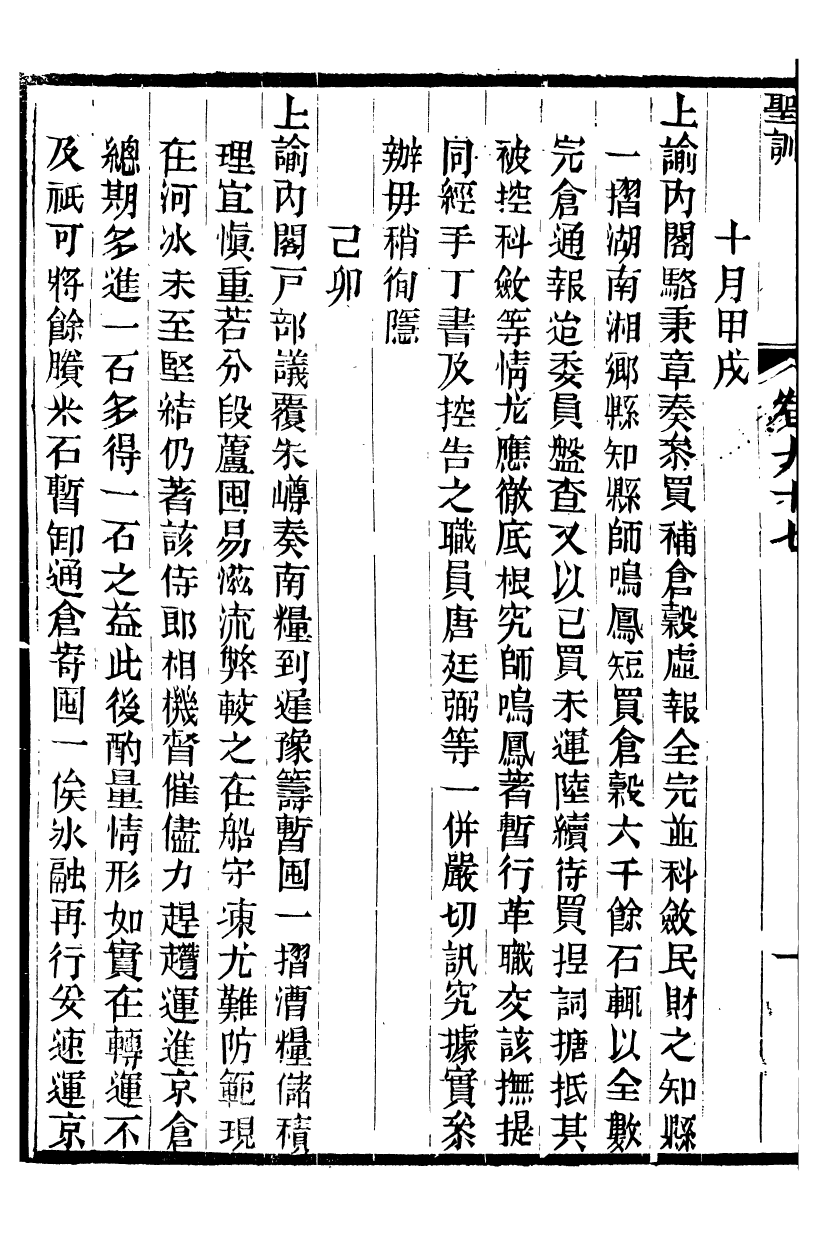 聖訓 卷九十七 一
十月甲戌
上諭內閣駱秉章奏叅買補倉穀虛報全完並科斂民財之知縣
一摺湖南湘鄉縣知縣師鳴鳳短買倉穀六千餘石輒以全數
完倉通報迨委員盤查又以已買未運陸續待買捏詞搪抵其
被控科斂等情尤應徹底根究師鳴鳳著暫行革職交該撫提
同經手丁書及控告之職員唐廷弼等一併嚴切訊究據實叅
辦毋稍徇隱
己卯
上諭內閣戶部議覆朱嶟奏南糧到遲豫籌暫囤一摺漕糧儲積
理宜愼重若分段蘆囤易滋流弊較之在船守凍尤難防範現
在河冰未至堅結仍著該侍郎相機督催儘力趕趲運進京倉
總期多進一石多得一石之益此後酌量情形如實在轉運不
及祗可將餘賸米石暫卸通倉寄囤一俟冰融再行妥速運京